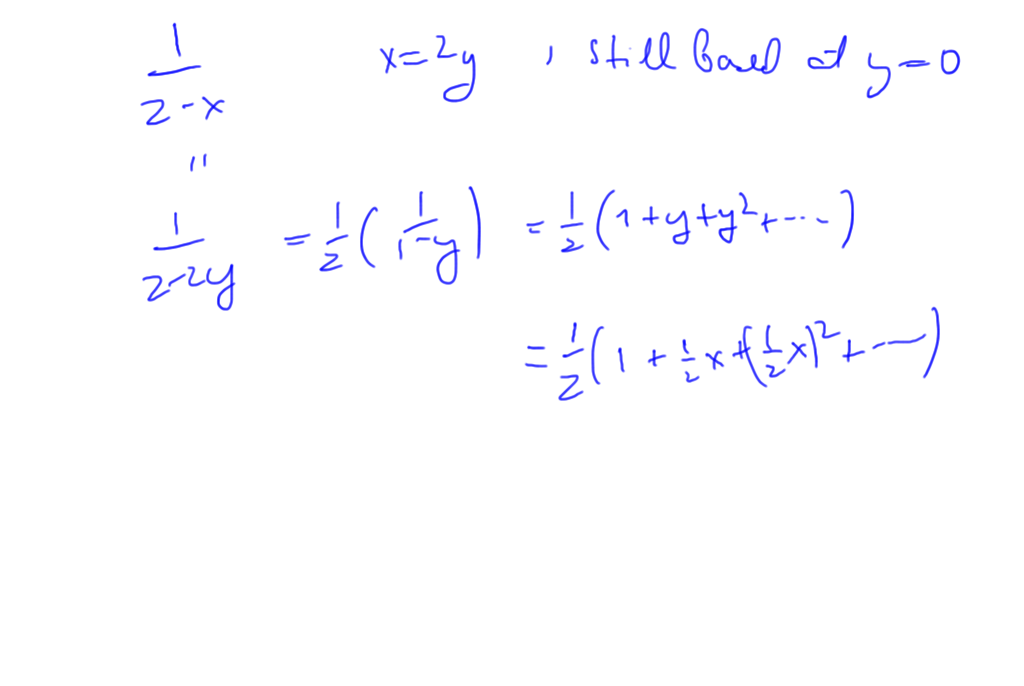 1/(2-x)    x=2y , still based at y=0
"
1/(2-2y) = 1/2 (1/(1-y)) = 1/2 (1+y+y²+···)
= 1/2 (1 + 1/2 x + (1/2 x)² + ···)